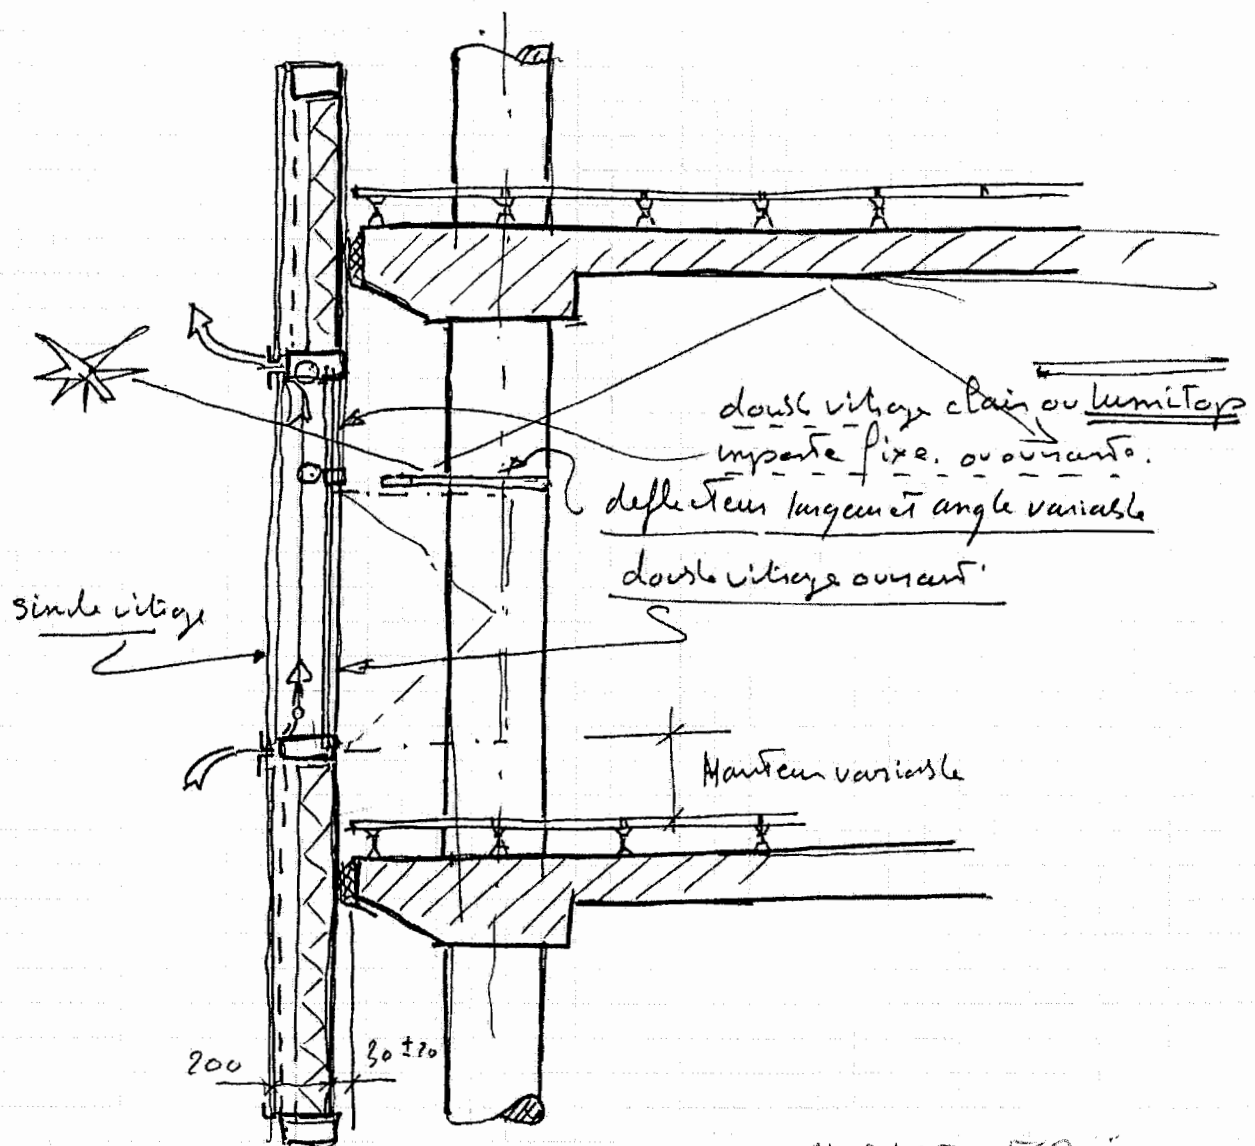 double vitrage clair ou lumitop
imposte fixe. ou ouvrante.
deflecteur largeur et angle variable
double vitrage ouvrant
simple vitrage
Hauteur variable
200
30 ±20